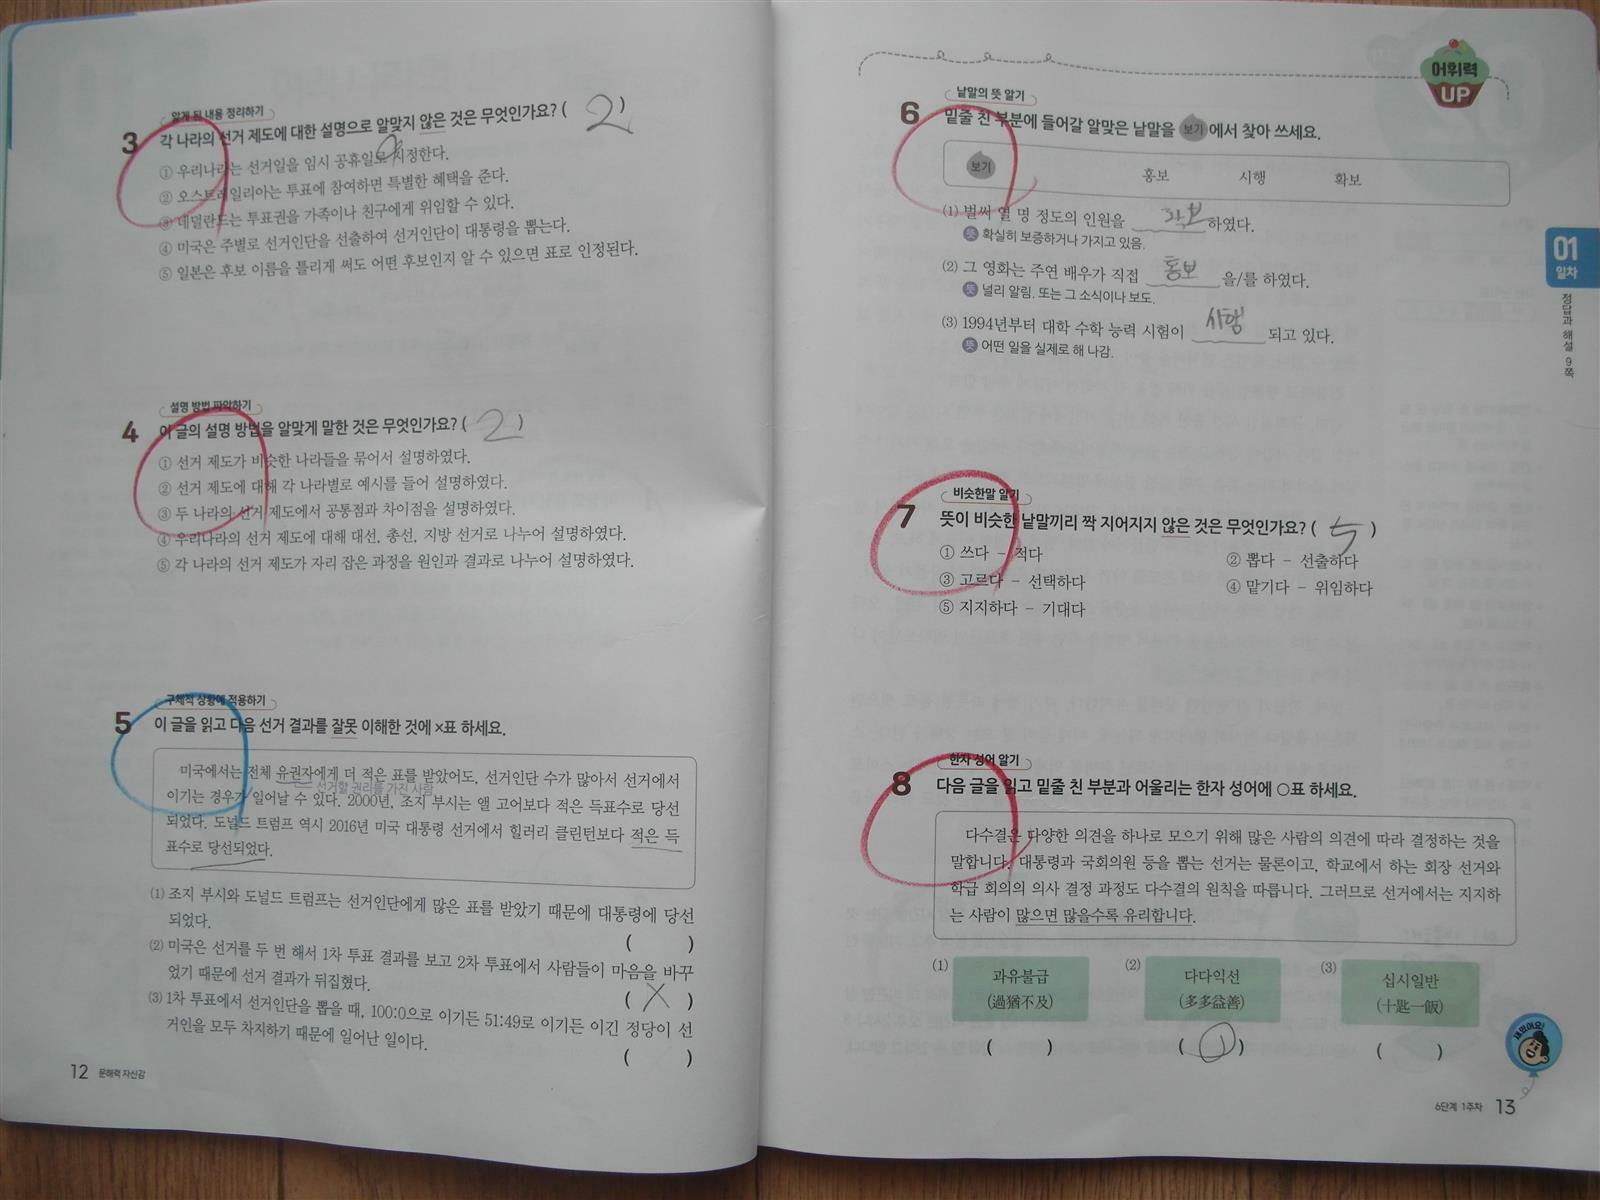 알게 된 내용 정리하기
3 각 나라의 선거 제도에 대한 설명으로 알맞지 않은 것은 무엇인가요? ( 2 )
① 우리나라는 선거일을 임시 공휴일로 지정한다.
② 오스트레일리아는 투표에 참여하면 특별한 혜택을 준다.
③ 네덜란드는 투표권을 가족이나 친구에게 위임할 수 있다.
④ 미국은 주별로 선거인단을 선출하여 선거인단이 대통령을 뽑는다.
⑤ 일본은 후보 이름을 틀리게 써도 어떤 후보인지 알 수 있으면 표로 인정된다.
설명 방법 파악하기
4 이 글의 설명 방법을 알맞게 말한 것은 무엇인가요? ( 2 )
① 선거 제도가 비슷한 나라들을 묶어서 설명하였다.
② 선거 제도에 대해 각 나라별로 예시를 들어 설명하였다.
③ 두 나라의 선거 제도에서 공통점과 차이점을 설명하였다.
④ 우리나라의 선거 제도에 대해 대선, 총선, 지방 선거로 나누어 설명하였다.
⑤ 각 나라의 선거 제도가 자리 잡은 과정을 원인과 결과로 나누어 설명하였다.
구체적 상황에 적용하기
5 이 글을 읽고 다음 선거 결과를 잘못 이해한 것에 ×표 하세요.
미국에서는 전체 유권자에게 더 적은 표를 받았어도, 선거인단 수가 많아서 선거에서
선거할 권리를 가진 사람
이기는 경우가 일어날 수 있다. 2000년, 조지 부시는 앨 고어보다 적은 득표수로 당선
되었다. 도널드 트럼프 역시 2016년 미국 대통령 선거에서 힐러리 클린턴보다 적은 득
표수로 당선되었다.
(1) 조지 부시와 도널드 트럼프는 선거인단에게 많은 표를 받았기 때문에 대통령에 당선
되었다. ( )
(2) 미국은 선거를 두 번 해서 1차 투표 결과를 보고 2차 투표에서 사람들이 마음을 바꾸
었기 때문에 선거 결과가 뒤집혔다. ( X )
(3) 1차 투표에서 선거인단을 뽑을 때, 100:0으로 이기든 51:49로 이기든 이긴 정당이 선
거인을 모두 차지하기 때문에 일어난 일이다. ( )
12 문해력 자신감
어휘력
UP
낱말의 뜻 알기
6 밑줄 친 부분에 들어갈 알맞은 낱말을 보기 에서 찾아 쓰세요.
보기 홍보 시행 확보
(1) 벌써 열 명 정도의 인원을 확보 하였다.
뜻 확실히 보증하거나 가지고 있음.
(2) 그 영화는 주연 배우가 직접 홍보 을/를 하였다.
뜻 널리 알림. 또는 그 소식이나 보도.
(3) 1994년부터 대학 수학 능력 시험이 시행 되고 있다.
뜻 어떤 일을 실제로 해 나감.
비슷한말 알기
7 뜻이 비슷한 낱말끼리 짝 지어지지 않은 것은 무엇인가요? ( 5 )
① 쓰다 – 적다 ② 뽑다 – 선출하다
③ 고르다 – 선택하다 ④ 맡기다 – 위임하다
⑤ 지지하다 – 기대다
한자 성어 알기
8 다음 글을 읽고 밑줄 친 부분과 어울리는 한자 성어에 ○표 하세요.
다수결은 다양한 의견을 하나로 모으기 위해 많은 사람의 의견에 따라 결정하는 것을
말합니다. 대통령과 국회의원 등을 뽑는 선거는 물론이고, 학교에서 하는 회장 선거와
학급 회의의 의사 결정 과정도 다수결의 원칙을 따릅니다. 그러므로 선거에서는 지지하
는 사람이 많으면 많을수록 유리합니다.
(1) 과유불급 (2) 다다익선 (3) 십시일반
(過猶不及) (多多益善) (十匙一飯)
( ) ( ○ ) ( )
재밌어요!
6단계 1주차 13
01
일차
정답과 해설 9쪽